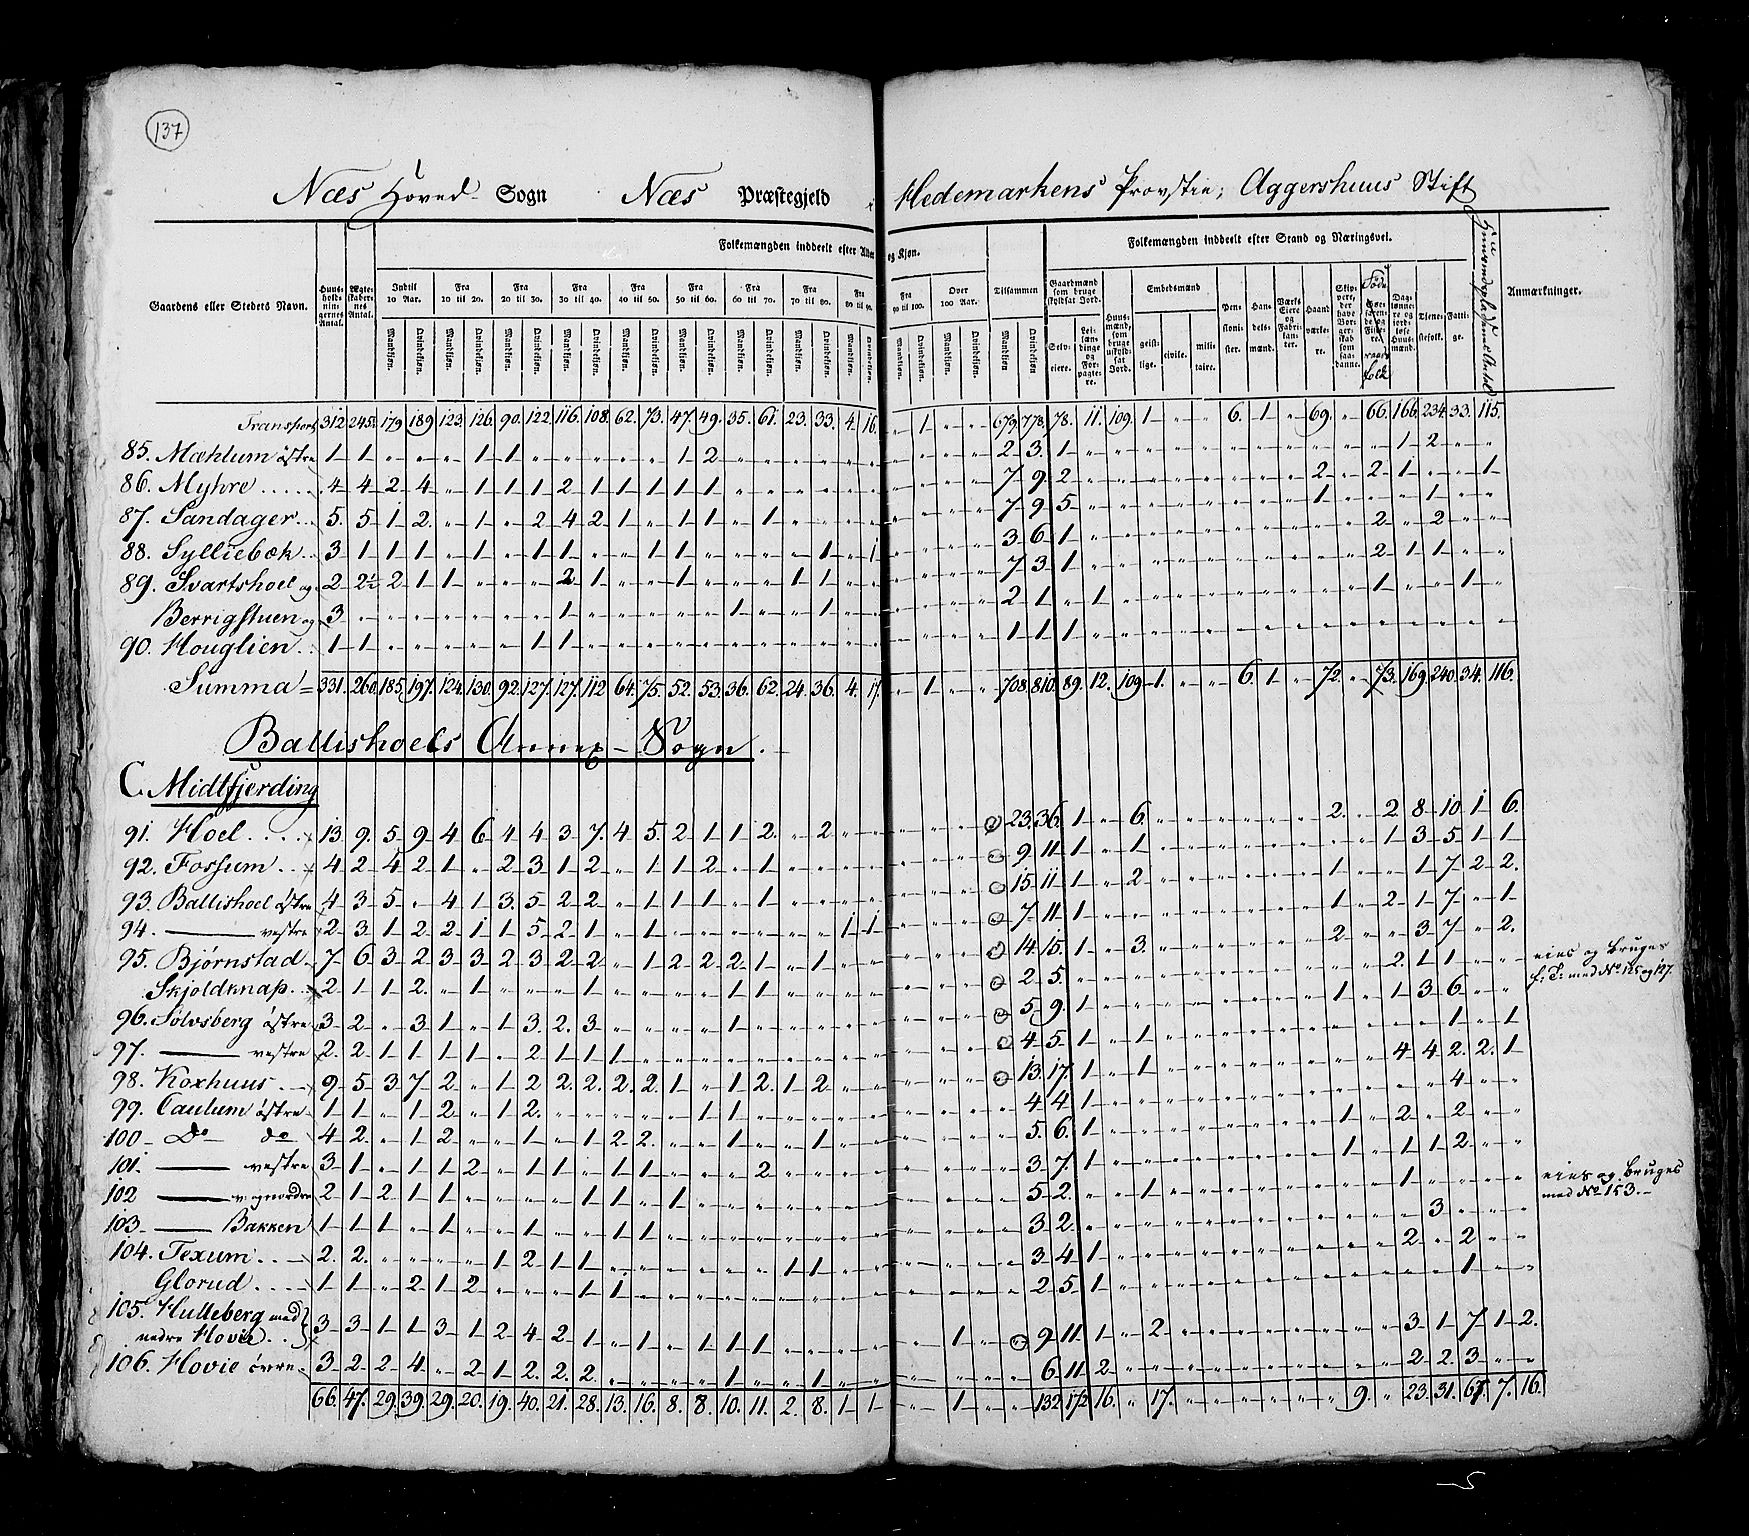 137
Næs Hoved Sogn Næs Præstegjeld i Hedemarkens Provstie, Aggershuus Stift
Gaardens eller Stedets Navn.
Huusholdningernes Antal.
Ægteskabernes Antal.
Folkemængden inddeelt efter Alder og Kjøn.
Indtil 10 Aar.
Fra 10 til 20.
Fra 20 til 30.
Fra 30 til 40.
Fra 40 til 50.
Fra 50 til 60.
Fra 60 til 70.
Fra 70 til 80.
Fra 80 til 90.
Fra 90 til 100.
Over 100 Aar.
Tilsammen
Mandkjøn. Qvindekjøn.
Folkemængden inddeelt efter Stand og Næringsvei.
Gaardmænd som bruge skyldsat Jord.
Selveiere.
Leilændinge og Forpagtere.
Huusmænd, som bruge uskyldsat Jord.
Embedsmænd
geistlige. civile. militaire.
Pensionister.
Handelsmænd.
Værks Eiere og Fabrikanter.
Haandværkere.
Daglønnere og jordløse Huusmænd.
Tjenestefolk.
Fattige.
Anmærkninger.
Transport 312 245 179 189 123 126 90 122 116 108 62 73 47 49 35 61 23 33 4 16 „ 1 „ „ 679 778 78 11 109 1 „ „ 6 1 „ 69 „ 66 166 234 33 115
85. Mæhlum östre 1 1 „ „ „ 1 1 „ „ „ „ „ 1 2 „ „ „ „ „ „ „ „ „ „ 2 3 1 „ „ „ „ „ „ „ „ „ „ „ 1 2 „ „
86. Myhre 4 4 2 4 „ 1 1 1 2 1 1 1 1 1 „ „ „ „ „ „ „ „ „ „ 7 9 2 „ „ „ „ „ „ „ „ 2 „ 2 1 „ „ 1
87. Sandager 5 5 1 2 „ 1 „ 2 4 2 1 „ 1 1 „ 1 „ „ „ „ „ „ „ „ 7 9 5 „ „ „ „ „ „ „ „ 1 „ „ „ 1 „ „
88. Sylliebæk 3 1 1 1 „ 1 „ 1 1 „ „ 1 1 „ „ „ „ 1 „ 1 „ „ „ „ 3 6 1 „ „ „ „ „ „ „ „ „ „ 2 „ 2 „ „
89. Svartshoel og 2 2½ 2 1 1 „ „ „ 2 1 „ „ 1 „ „ „ 1 1 „ „ „ „ „ „ 7 3 1 „ „ „ „ „ „ „ „ „ „ 2 1 1 „ „
Berrigstuen og 3 „ „ „ „ „ „ „ 1 „ „ „ „ „ 1 „ „ 1 „ „ „ „ „ „ 2 1 „ 1 „ „ „ „ „ „ „ „ „ 1 „ „ 1 „
90. Houglien 1 1 „ „ „ „ „ 1 1 „ „ „ „ „ „ „ „ „ „ „ „ „ „ „ 1 1 1 „ „ „ „ „ „ „ „ „ „ „ „ „ „ „
Summa = 331 260 185 197 124 130 92 127 127 112 64 75 52 53 36 62 24 36 4 17 „ 1 „ „ 708 810 89 12 109 1 „ „ 6 1 „ 72 „ 73 169 240 34 116
Ballishoels Annex-Sogn.
C. Midtfjerding
91. Hoel 13 9 5 9 4 6 1 4 3 7 4 5 2 1 1 2 „ 2 „ „ „ „ „ 23 36 1 „ 6 „ „ „ „ „ „ 2 „ 2 8 10 1 6
92. Fossum 4 2 4 2 1 „ 2 3 1 2 „ 1 1 2 „ 1 „ „ „ „ „ „ „ 9 11 1 „ 1 „ „ „ „ „ „ „ „ 1 3 5 1 1
93. Ballishoel östre 4 3 5 „ 4 1 3 5 2 2 „ 1 1 1 „ 1 „ „ „ „ „ „ „ 15 11 1 „ 2 „ „ „ „ „ „ 1 „ „ 1 7 2 2
94. — vestre 2 3 1 2 2 1 1 5 2 1 „ 1 „ „ „ „ „ „ 1 1 „ „ „ 7 11 1 „ „ „ „ „ „ „ „ 1 „ 2 1 7 „ 1
95. Bjørnstad 7 6 3 2 3 3 2 3 2 2 „ 1 2 2 2 1 „ 1 „ „ „ „ „ 14 15 1 „ 3 „ „ „ „ „ „ 2 „ „ 3 7 „ 2
Skjoldknap 2 1 1 2 „ 1 „ „ „ 1 „ „ „ „ 1 1 „ „ „ „ „ „ „ 2 5 „ „ „ „ „ „ „ „ „ „ „ 2 1 1 „ „ eies og bruges f. T: med No 125 og 127.
96. Sølvsberg östre 3 2 „ 3 1 „ 1 3 2 3 „ „ „ „ 1 „ „ „ „ „ „ „ „ 5 9 1 „ „ „ „ „ „ „ „ 1 „ 1 3 6 „ „
97. — vestre 2 2 1 1 1 1 „ 2 1 1 1 „ „ „ „ „ „ „ „ „ „ „ „ 4 5 1 „ 1 „ „ „ „ „ „ „ „ „ „ 1 „ 1
98. Koxhuus 9 5 3 7 2 „ 1 2 2 2 2 2 1 „ 1 2 1 2 „ „ „ „ „ 13 17 1 „ 1 „ „ „ „ „ „ „ „ 4 4 2 2 1
99. Caulum östre 1 1 „ 1 2 „ 1 2 „ „ „ „ „ 1 1 „ „ „ „ „ „ „ „ 4 4 1 „ „ „ „ „ „ „ „ „ „ „ „ 4 „ „
100 Do do 4 2 „ 1 2 „ „ 1 „ 1 2 2 „ „ 1 „ „ 1 „ „ „ „ „ 5 6 1 „ „ „ „ „ „ „ „ 1 „ 2 „ 2 „ „
101. — vestre 3 1 „ 1 1 2 „ 1 1 „ 1 1 „ „ „ 2 „ „ „ „ „ „ „ 3 7 1 „ „ „ „ „ „ „ „ 1 „ 1 1 2 „ „
102 — nordre 2 1 2 1 1 „ „ „ „ 1 1 „ 1 „ „ „ „ „ „ „ „ „ „ 5 2 „ „ 1 „ „ „ „ „ „ „ „ „ 1 „ „ „ eies og bruges med No 153.
103 — Bakken 1 1 1 „ 1 „ „ 1 „ „ 1 1 „ „ „ „ „ „ „ „ „ „ „ 3 2 „ „ „ „ „ „ „ „ „ „ „ „ „ 3 „ „
104. Texum 2 2 „ „ „ „ 1 2 1 1 „ „ „ „ „ „ 1 1 „ „ „ „ „ 3 4 1 „ „ „ „ „ „ „ „ „ „ „ 2 „ 2 „ „
Glorud 1 1 „ 2 1 2 „ „ „ 1 1 „ „ „ „ „ „ „ „ „ „ „ „ 2 5 1 „ „ „ „ „ „ „ „ „ „ „ „ 1 „ „
105. Hulleberg med
nedre Hovie 3 3 1 1 3 1 2 4 2 1 „ 1 „ 1 1 1 „ „ „ „ „ 1 „ 9 11 1 „ 2 „ „ „ „ „ „ „ „ 3 1 7 1 2
106. Hovie övre 3 2 2 4 „ 2 1 2 2 2 „ „ „ „ 1 „ „ 1 „ „ „ „ „ 6 11 2 „ „ „ „ „ „ „ „ „ „ 2 2 3 „ „
66 47 29 39 29 20 19 40 21 28 13 16 8 8 10 11 2 8 1 1 „ 1 „ „ 132 172 16 „ 17 „ „ „ „ „ „ 9 „ 23 31 67 7 16